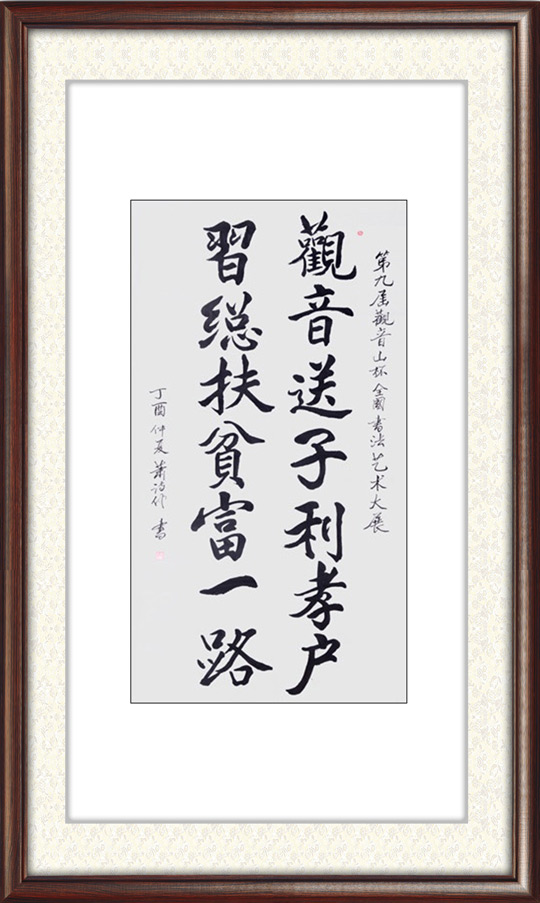 第九届觀音山杯全國书法艺术大展
觀音送子利孝户
習總扶貧富一路
丁酉仲夏萧诗作書